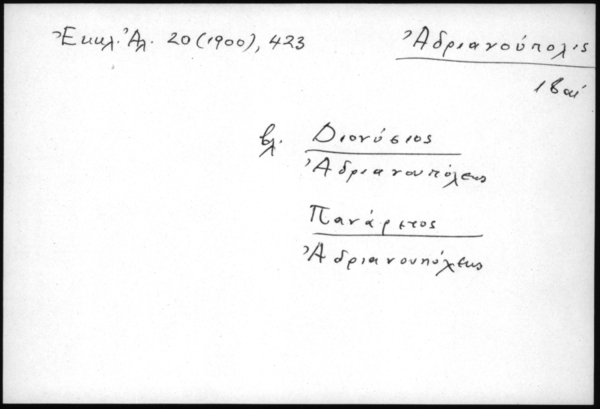 Ἐκκλ. Ἀλ. 20 (1900), 423
Ἀδριανούπολις
18 αἰ
βλ. Διονύσιος
Ἀδριανουπόλεως
Πανάρετος
Ἀδριανουπόλεως